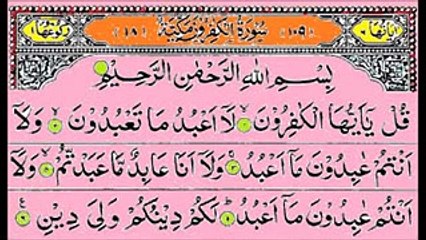 اٰيَاتُهَا ٦ ﴿١٠٩﴾ سُوْرَةُ الْكٰفِرُوْنَ مَكِّيَّةٌ ﴿١٨﴾ رُكُوْعُهَا ١
بِسْمِ اللّٰهِ الرَّحْمٰنِ الرَّحِيْمِ
قُلْ يٰۤاَيُّهَا الْكٰفِرُوْنَ لَاۤ اَعْبُدُ مَا تَعْبُدُوْنَ وَلَاۤ
اَنْتُمْ عٰبِدُوْنَ مَاۤ اَعْبُدُ وَلَاۤ اَنَا عَابِدٌ مَّا عَبَدْتُّمْ وَلَاۤ
اَنْتُمْ عٰبِدُوْنَ مَاۤ اَعْبُدُ لَكُمْ دِيْنُكُمْ وَلِيَ دِيْنِ